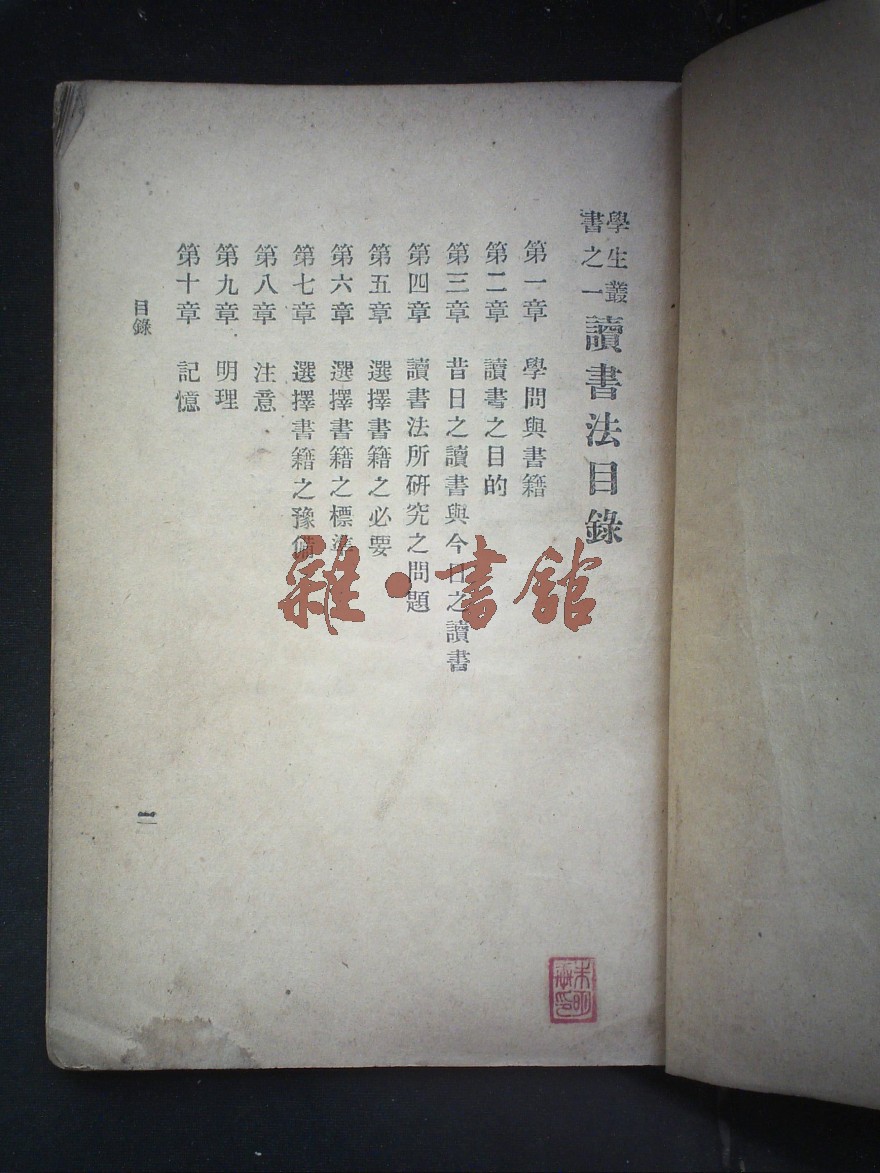 學生叢書之一 讀書法目錄
第一章 學問與書籍
第二章 讀書之目的
第三章 昔日之讀書與今日之讀書
第四章 讀書法所研究之問題
第五章 選擇書籍之必要
第六章 選擇書籍之標準
第七章 選擇書籍之豫備
第八章 注意
第九章 明理
第十章 記憶
目錄
雜·書館